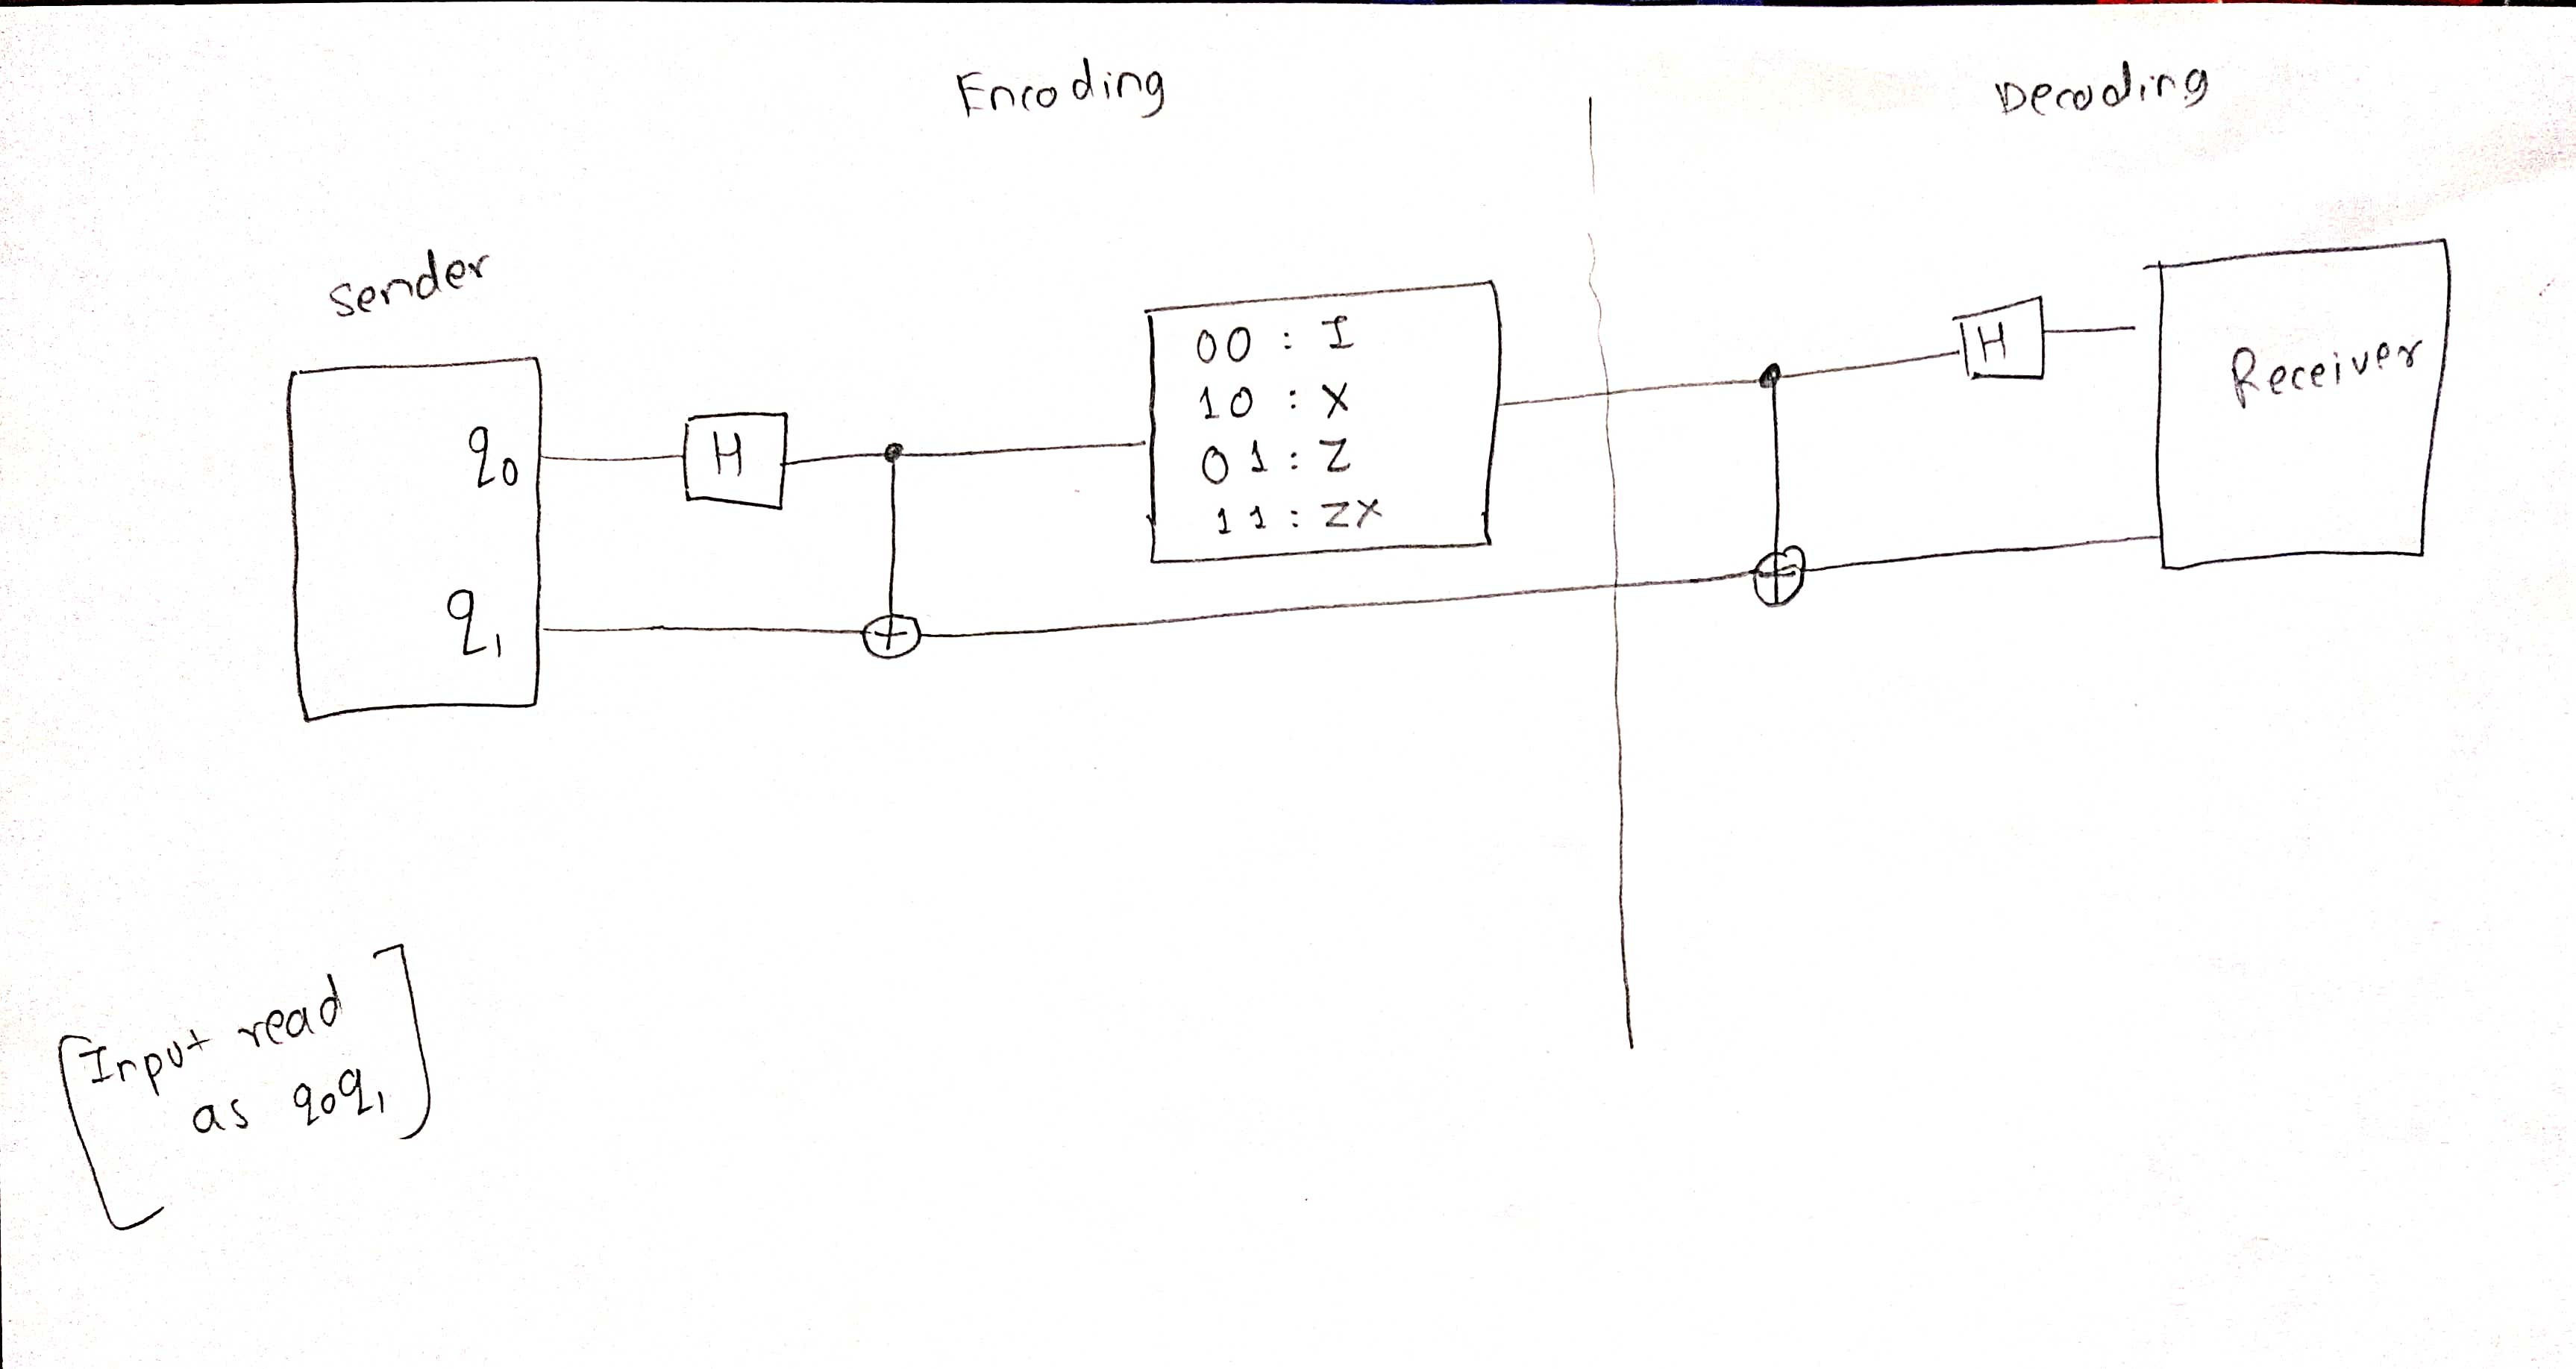 Encoding
Decoding
Sender
q₀
q₁
H
00 : I
10 : X
01 : Z
11 : ZX
H
Receiver
[Input read
as q₀q₁]